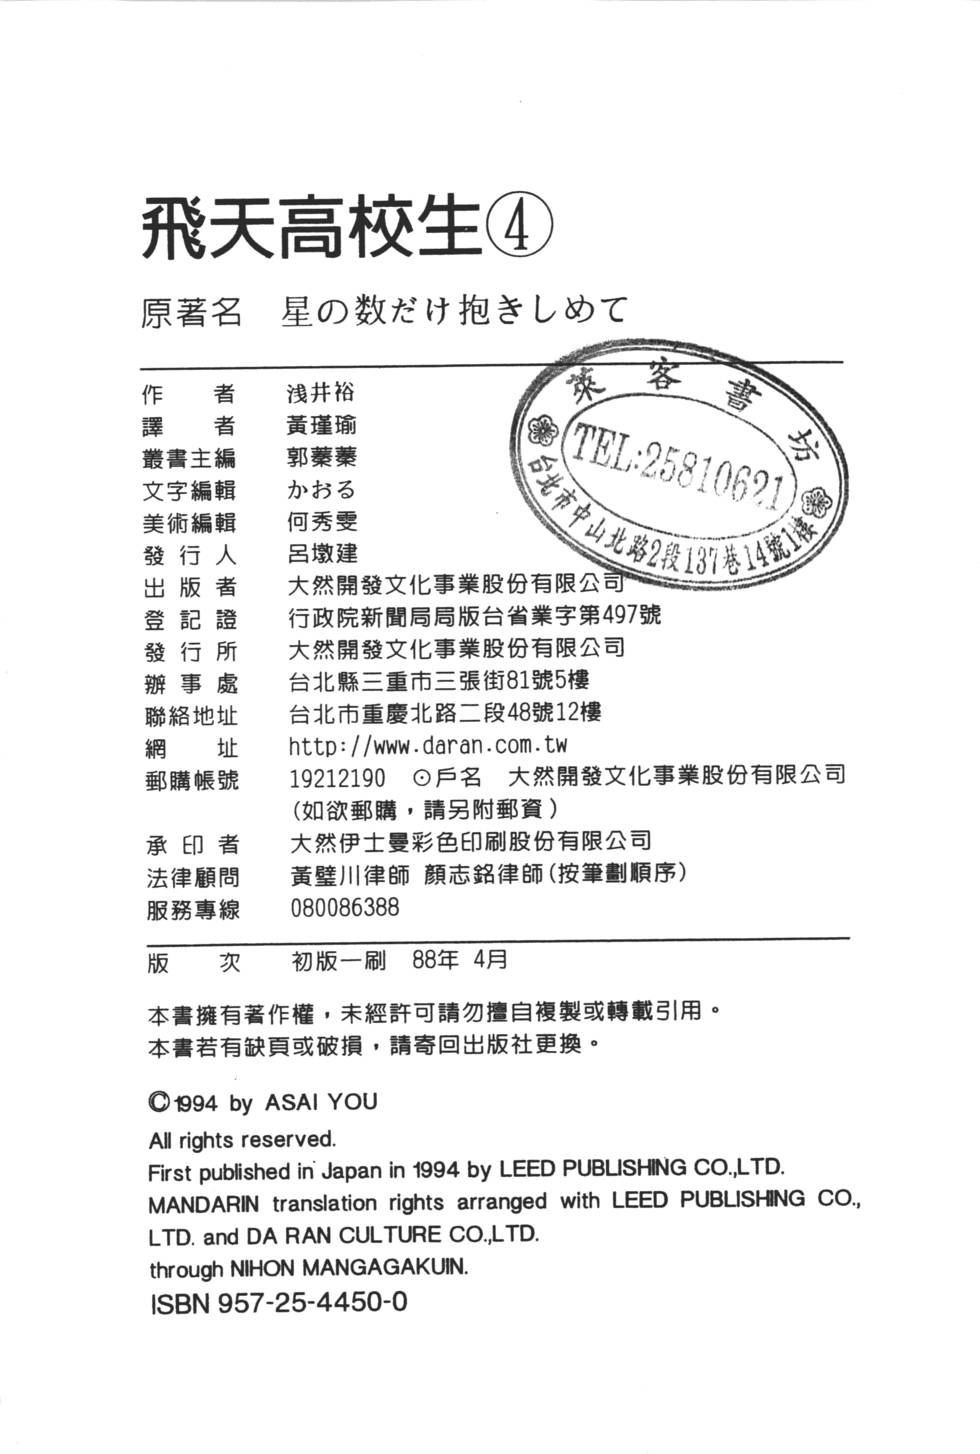 飛天高校生④
原著名 星の数だけ抱きしめて
作者 浅井裕
譯者 黃瑾瑜
叢書主編 郭蓁蓁
文字編輯 かおる
美術編輯 何秀雯
發行人 呂墩建
出版者 大然開發文化事業股份有限公司
登記證 行政院新聞局局版台省業字第497號
發行所 大然開發文化事業股份有限公司
辦事處 台北縣三重市三張街81號5樓
聯絡地址 台北市重慶北路二段48號12樓
網址 http://www.daran.com.tw
郵購帳號 19212190 ⊙戶名 大然開發文化事業股份有限公司
(如欲郵購，請另附郵資)
承印者 大然伊士曼彩色印刷股份有限公司
法律顧問 黃璧川律師 顏志銘律師(按筆劃順序)
服務專線 080086388
版次 初版一刷 88年 4月
本書擁有著作權，未經許可請勿擅自複製或轉載引用。
本書若有缺頁或破損，請寄回出版社更換。
©1994 by ASAI YOU
All rights reserved.
First published in Japan in 1994 by LEED PUBLISHING CO.,LTD.
MANDARIN translation rights arranged with LEED PUBLISHING CO.,
LTD. and DA RAN CULTURE CO.,LTD.
through NIHON MANGAGAKUIN.
ISBN 957-25-4450-0
萊客書坊
TEL:25810621
台北市中山北路2段137巷14號1樓